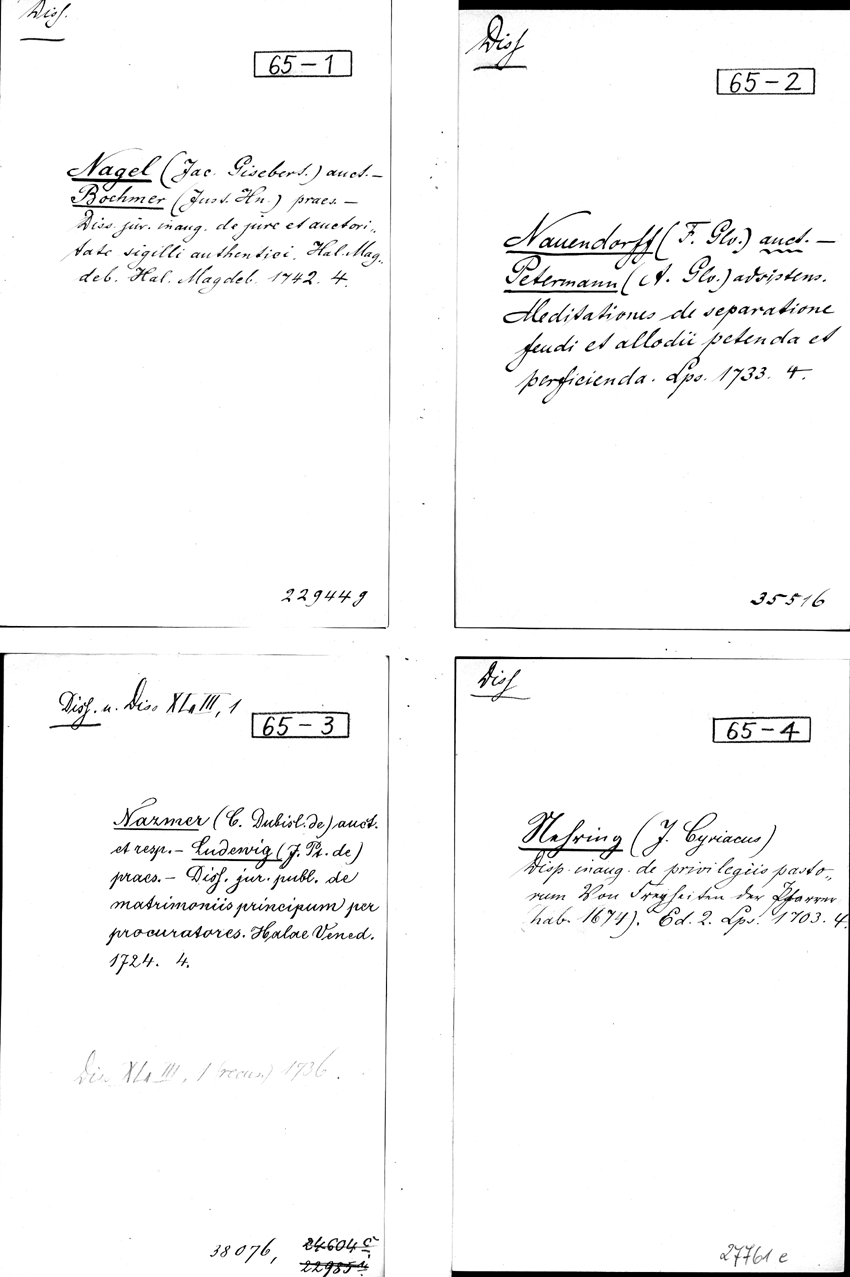 Diss.
65-1
Nagel (Jac. Gisebert.) auct. –
Boehmer (Just. Hn.) praes. –
Diss. jur. inaug. de jure et auctori„
tate sigilli authentici. Hal. Mag„
deb. Hal. Magdeb. 1742. 4.
229449
Diss
65-2
Nauendorff (F. Glo.) auct. –
Petermann (A. Glo.) adsistens.
Meditationes de separatione
feudi et allodii petenda et
perficienda. Lps. 1733. 4.
35516
Diss. u. Diss XLa III, 1
65-3
Nazmer (C. Dubisl. de) auct.
et resp. – Ludewig (J. Pt. de)
praes. – Diss. jur. publ. de
matrimoniis principum per
procuratores. Halae Vened.
1724. 4.
Diss XLa III, 1 (recus.) 1736.
38076, 24604 c
22985
Diss
65-4
Nehring (J. Cyriacus)
Disp. inaug. de privilegiis pasto„
rum Von Freyheiten der Pfarrer
hab. 1674). Ed. 2. Lps. 1703. 4.
27761 e